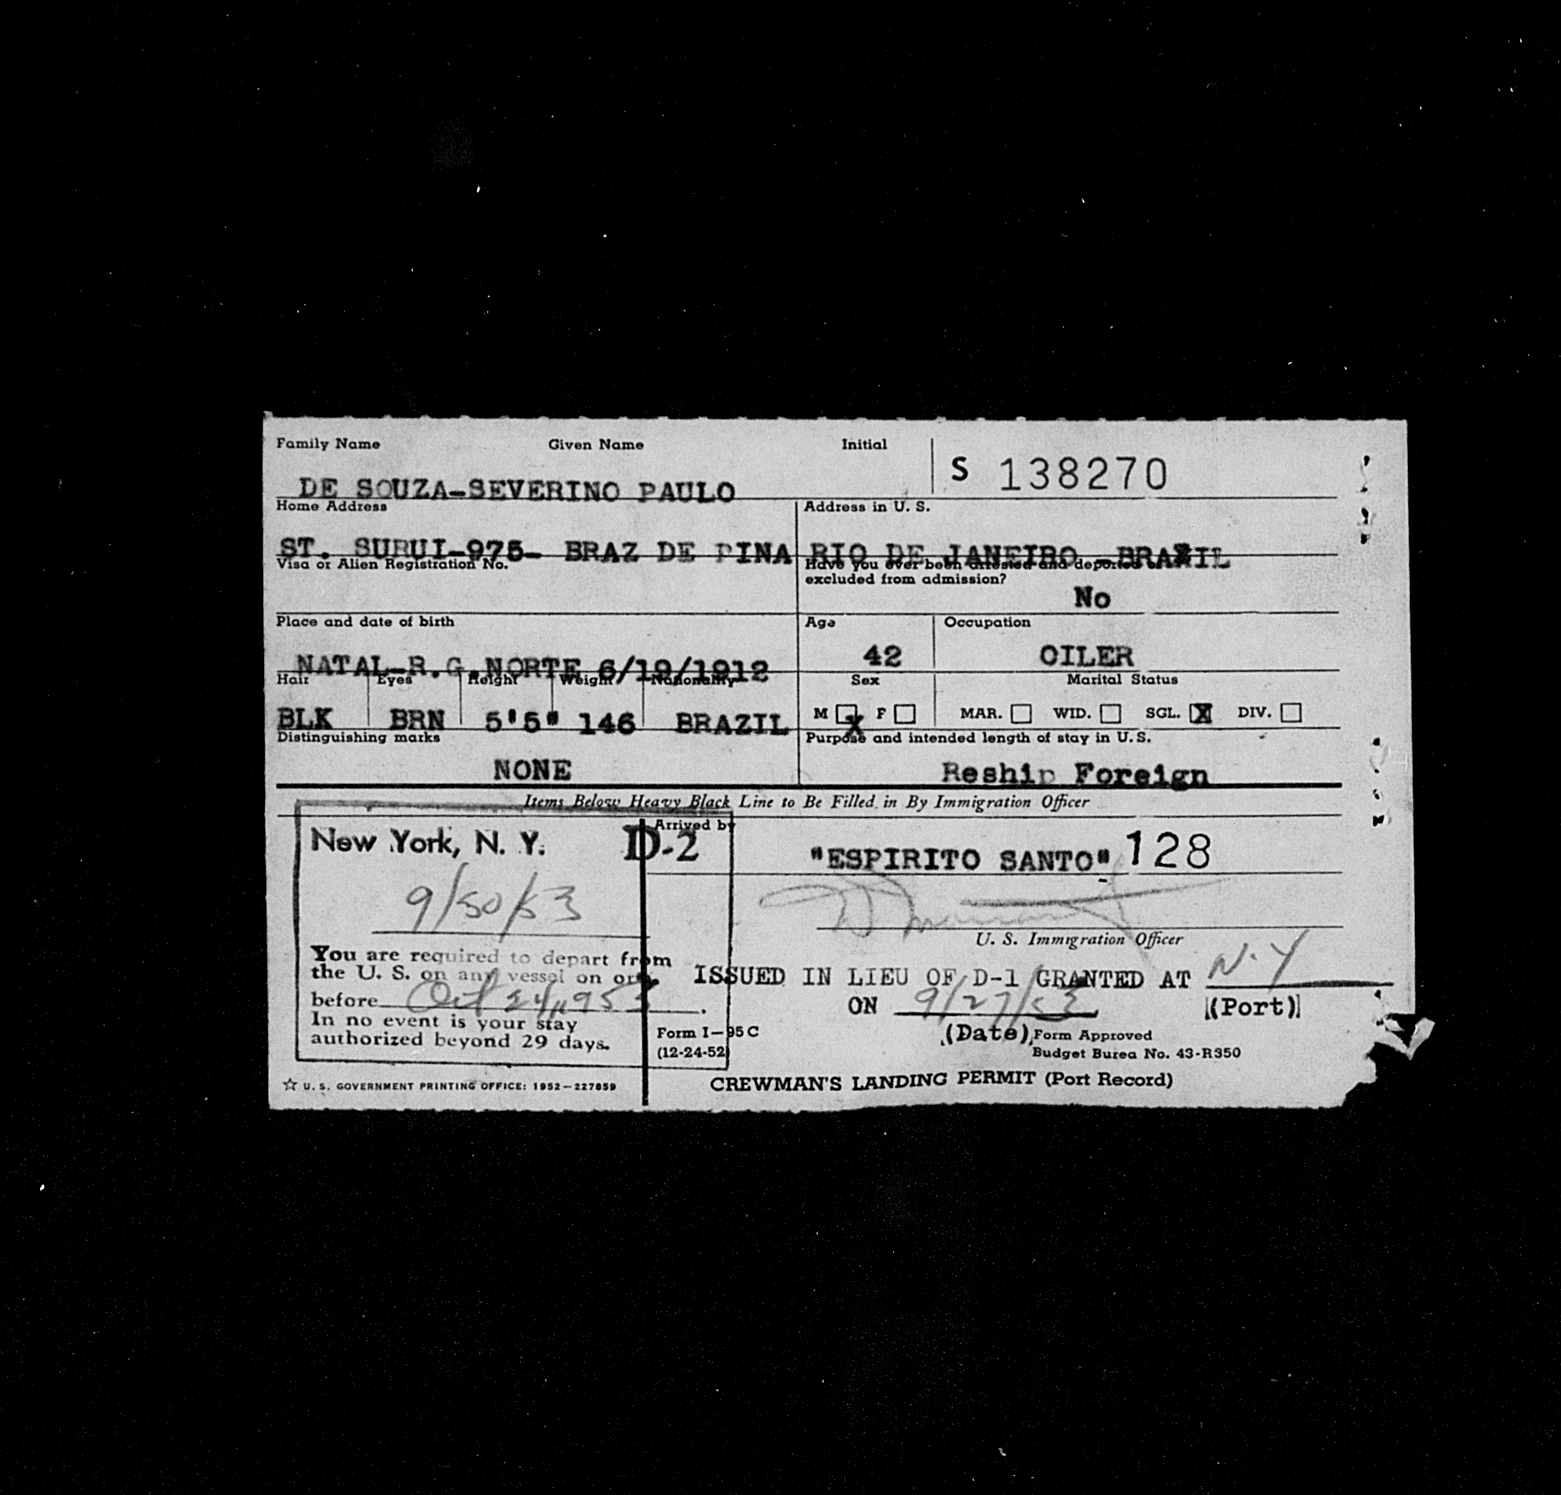 Family Name Given Name Initial
S 138270
DE SOUZA-SEVERINO PAULO
Home Address Address in U. S.
ST. SURUI-975- BRAZ DE PINA RIO DE JANEIRO -BRAZIL
Visa or Alien Registration No. Have you ever been arrested and deported or
excluded from admission?
No
Place and date of birth Age Occupation
NATAL-R.G.NORTE 6/19/1912 42 OILER
Hair Eyes Height Weight Nationality Sex Marital Status
BLK BRN 5'5" 146 BRAZIL M X F MAR. WID. SGL. X DIV.
Distinguishing marks Purpose and intended length of stay in U.S.
NONE Reship Foreign
Items Below Heavy Black Line to Be Filled in By Immigration Officer
New York, N. Y. D-2 Arrived by
"ESPIRITO SANTO" 128
9/30/53
U. S. Immigration Officer
You are required to depart from
the U. S. on any vessel on or
before Oct 24, 1953.
In no event is your stay
authorized beyond 29 days.
ISSUED IN LIEU OF D-1 GRANTED AT N.Y
(Port)
ON 9/27/53
(Date)
Form I-95C
(12-24-52)
Form Approved
Budget Burea No. 43-R350
☆ U. S. GOVERNMENT PRINTING OFFICE: 1952-227859
CREWMAN'S LANDING PERMIT (Port Record)